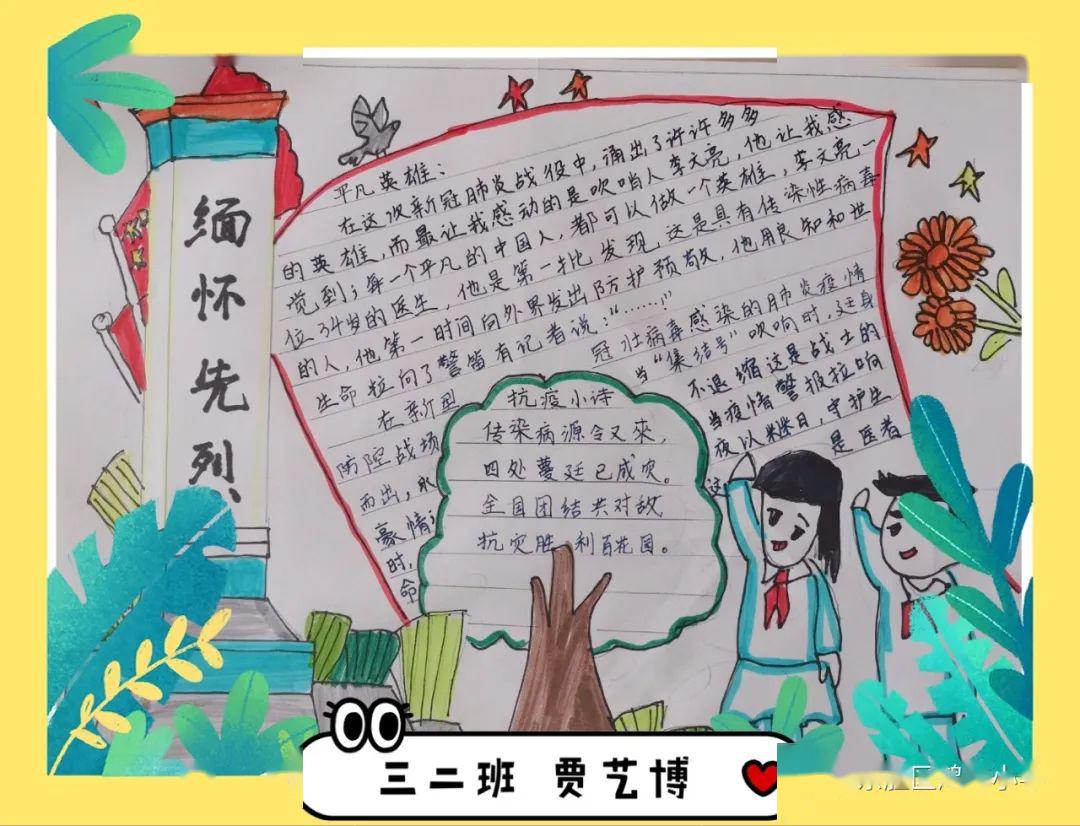 缅怀先烈
平凡英雄:
在这次新冠肺炎战役中,涌出了许许多多
的英雄,而最让我感动的是吹哨人李文亮,他让我感
觉到;每一个平凡的中国人,都可以做一个英雄,李文亮一
位34岁的医生,他是第一批发现,这是具有传染性病毒
的人,他第一时间向外界发出防护预敬,他用良知和世
生命拉向了警笛有记者说:“……”
在新型
冠壮病毒感染的肺炎疫情
防控战场
当“集结号”吹响时,廷身
而出,
不退缩这是战士的
豪情;
当疫情警报拉响
时,
夜以继日,守护生
命
这
是医者
抗疫小诗
传染病源令又来,
四处蔓廷已成灾。
全国团结共对敌
抗灾胜利百花园。
三二班 贾艺博